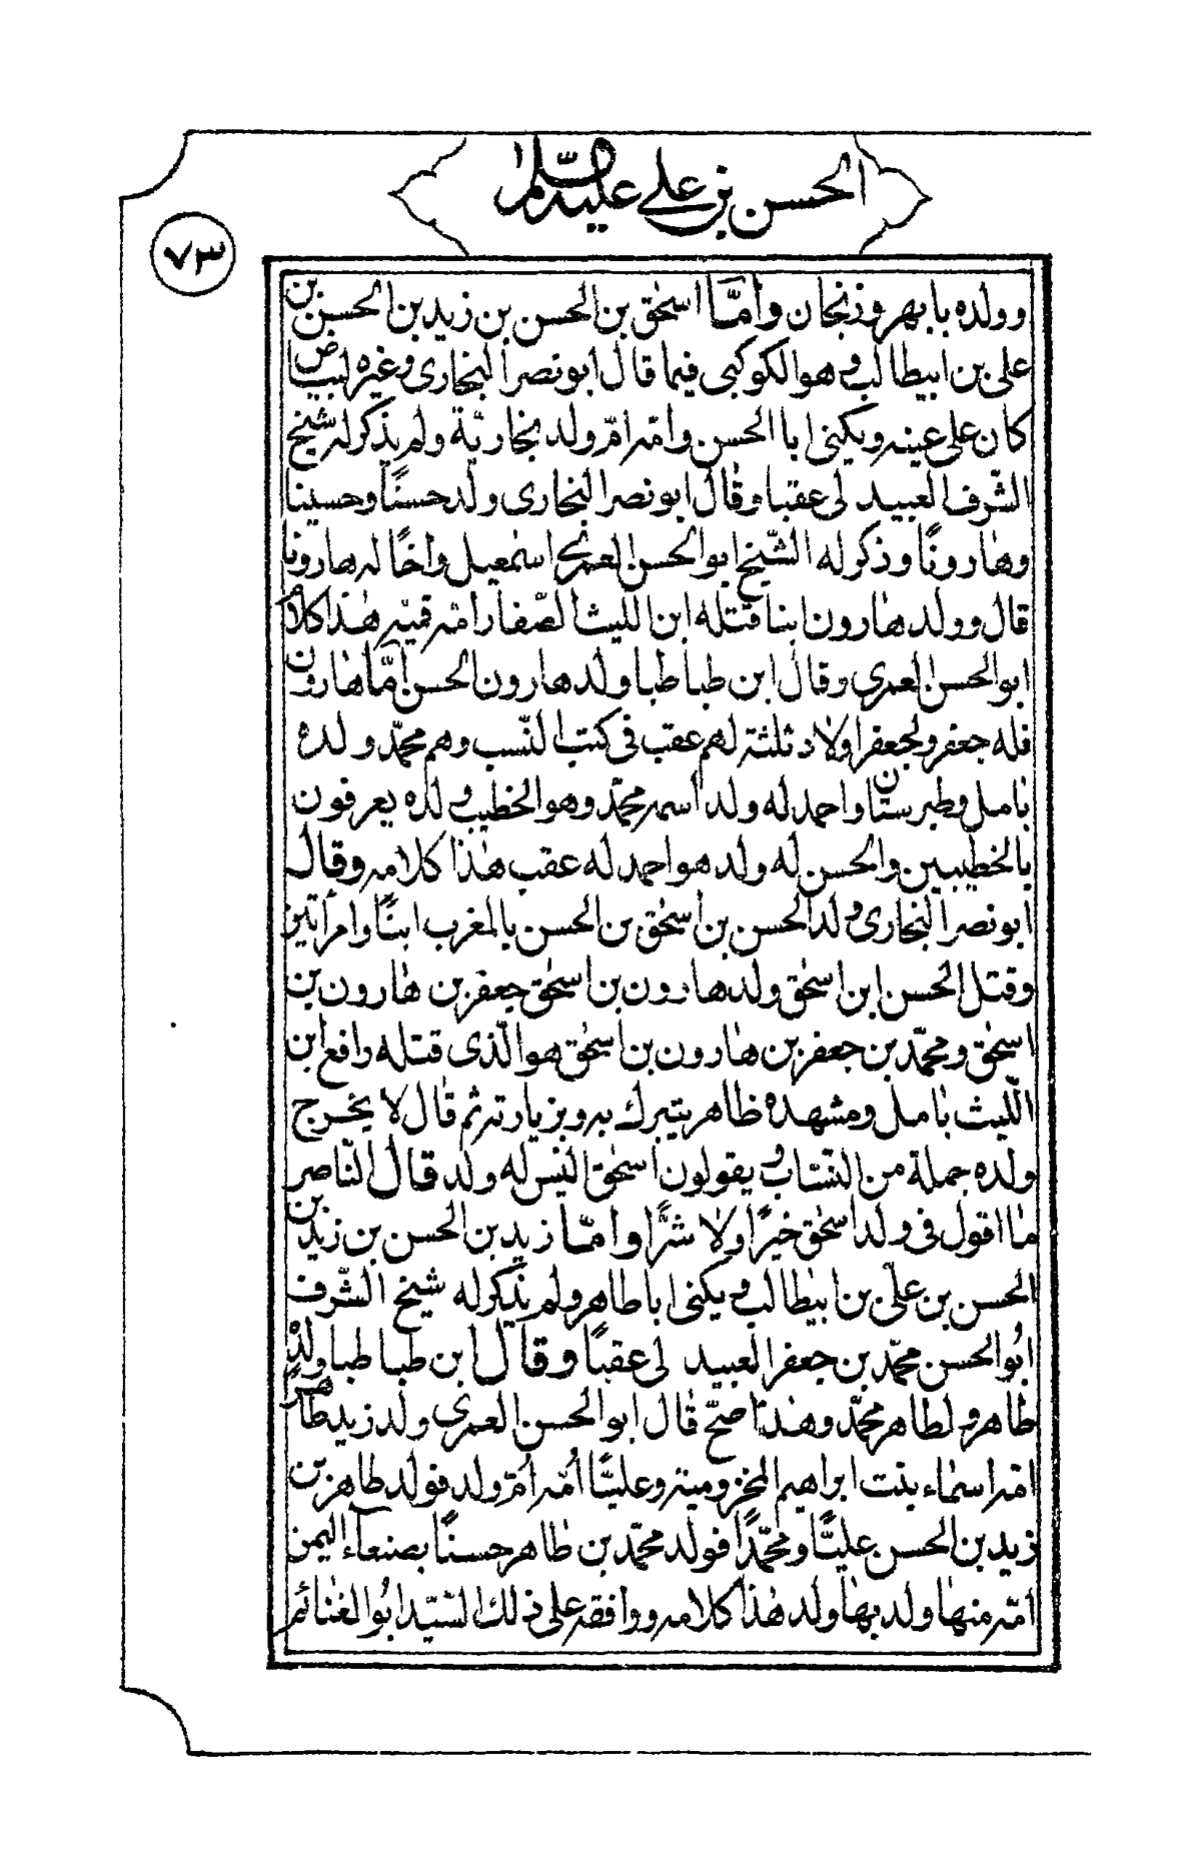 الحسن بن علي عليه السلام
٧٣
وولده بابهر وزنجان وأمّا اسحٰق بن الحسن بن زيد بن الحسن بن
على بن ابيطالب وهو الكوكبى فيما قال ابو نصر البخارى وغيره لبياض
كان على عينه ويكنى ابا الحسن وامّه امّ ولد بخاريّة ولم يذكر له شيخ
الشّرف العبيدلى عقبا وقال ابو نصر البخارى ولد حسنًا وحسينا
وهارونًا وذكر له الشّيخ ابو الحسن العمرى اسمٰعيل واخًا له هارونا
قال وولد هارون ابنا قتله ابن الليث الصّفار امّه قميّه هٰذا كلام
ابو الحسن العمرى وقال ابن طباطبا ولد هارون الحسن امّا هارون
فله جعفر ولجعفر اولاد ثلثة لهم عقب فى كتب النّسب وهم محمّد ولده
بامل وطبرستان واحمد له ولد اسمه محمّد وهو الخطيب ولده يعرفون
بالخطيبين والحسن له ولد هو احمد له عقب هٰذا كلامه وقال
ابو نصر البخارى ولد الحسن بن اسحٰق بن الحسن بالمغرب ابنًا وامرأتين
وقتل الحسن ابن اسحٰق ولد هارون بن اسحٰق جعفر بن هٰارون بن
اسحٰق ومحمّد بن جعفر بن هٰارون بن اسحٰق هو الّذى قتله رافع ابن
اللّيث بامل ومشهده ظاهر يتبرك به وبزيارته ثم قال لا يخرج
ولده جملة من النسّاب ويقولون اسحٰق اليس له ولد قال النّاصر
ما اقول فى ولد اسحٰق خيرًا ولا شرًّا وامّا زيد بن الحسن بن زيد بن
الحسن بن علىّ بن ابيطالب ويكنى ابا طاهر ولم يذكر له شيخ الشّرف
ابو الحسن محمّد بن جعفر العبيدلى عقبًا وقال ابن طباطبا ولد
طاهر ولطاهر محمّد وهٰذا اصحّ قال ابو الحسن العمرى ولد زيد طاهرًا
امّه اسماء بنت ابراهيم المخزومية وعليًّا امّه امّ ولد فولد طاهر بن
زيد بن الحسن عليًّا ومحمّدًا فولد محمّد بن طاهر حسنًا بصنعآء اليمن
امّه منها ولد بها ولد هٰذا كلامه ووافقه على ذلك السّيّد ابو الغنائم